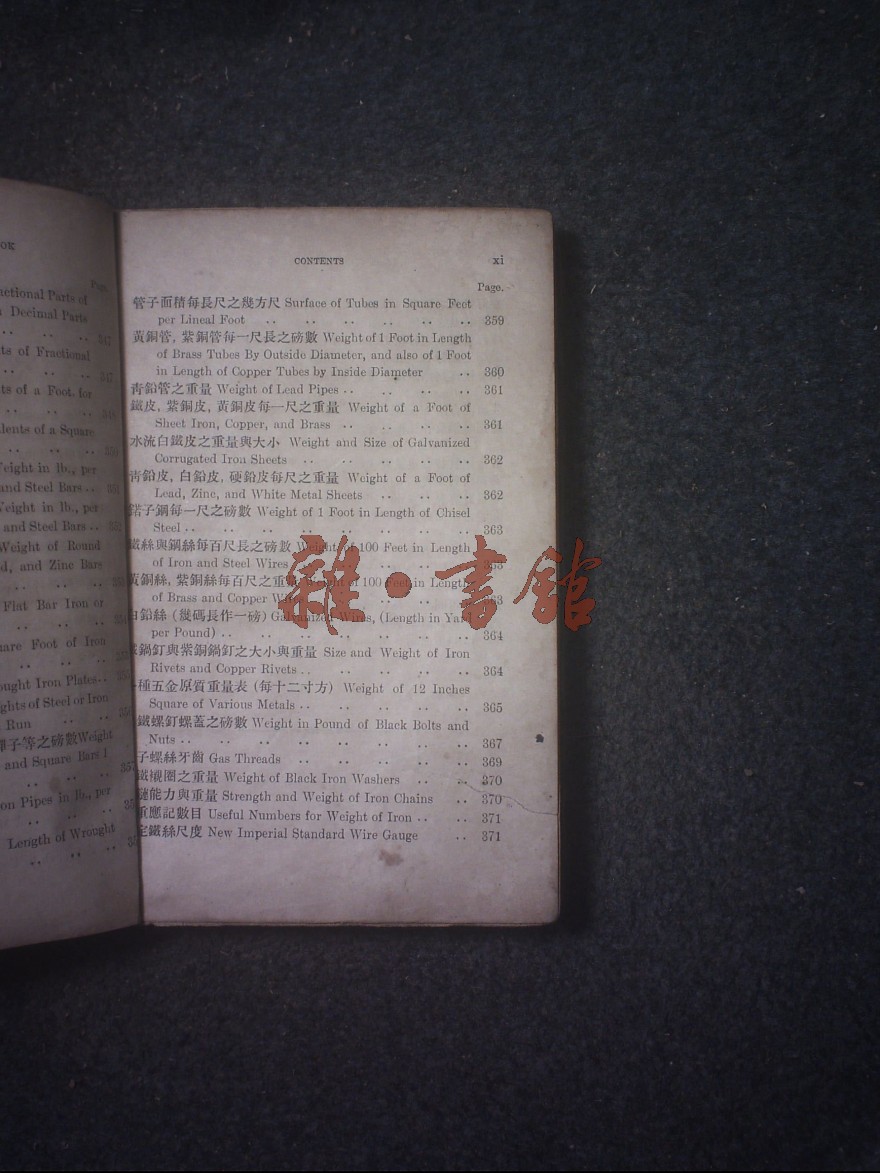 OK
Page.
actional Parts of
Decimal Parts
347
ts of Fractional
347
ts of a Foot, for
lents of a Square
350
Weight in lb., per
and Steel Bars .. 351
Weight in lb., per
and Steel Bars .. 352
Weight of Round
d, and Zinc Bars
Flat Bar Iron or
uare Foot of Iron
ought Iron Plates ..
ghts of Steel or Iron
Run
子等之磅數 Weight
and Square Bars 1
on Pipes in lb., per
Length of Wrought
CONTENTS xi
Page.
管子面積每長尺之幾方尺 Surface of Tubes in Square Feet
per Lineal Foot .. .. .. .. .. .. 359
黃銅管, 紫銅管每一尺長之磅數 Weight of 1 Foot in Length
of Brass Tubes By Outside Diameter, and also of 1 Foot
in Length of Copper Tubes by Inside Diameter .. 360
靑鉛管之重量 Weight of Lead Pipes .. .. .. .. 361
鐵皮, 紫銅皮, 黃銅皮每一尺之重量 Weight of a Foot of
Sheet Iron, Copper, and Brass .. .. .. .. 361
水流白鐵皮之重量與大小 Weight and Size of Galvanized
Corrugated Iron Sheets .. .. .. .. .. 362
靑鉛皮, 白鉛皮, 硬鉛皮每尺之重量 Weight of a Foot of
Lead, Zinc, and White Metal Sheets .. .. .. 362
鍩子鋼每一尺之磅數 Weight of 1 Foot in Length of Chisel
Steel .. .. .. .. .. .. .. .. 363
鐵絲與鋼絲每百尺長之磅數 Weight of 100 Feet in Length
of Iron and Steel Wires .. .. .. .. .. 363
黃銅絲, 紫銅絲每百尺之重 Weight of 100 Feet in Length
of Brass and Copper Wires .. .. .. .. 363
白鉛絲 (幾碼長作一磅) Galvanized Wires, (Length in Yard
per Pound) .. .. .. .. .. .. .. 364
鍋釘與紫銅鍋釘之大小與重量 Size and Weight of Iron
Rivets and Copper Rivets .. .. .. .. .. 364
種五金原質重量表 (每十二寸方) Weight of 12 Inches
Square of Various Metals .. .. .. .. .. 365
鐵螺釘螺蓋之磅數 Weight in Pound of Black Bolts and
Nuts .. .. .. .. .. .. .. .. 367
子螺絲牙齒 Gas Threads .. .. .. .. .. 369
鐵襯圈之重量 Weight of Black Iron Washers .. .. 370
鏈能力與重量 Strength and Weight of Iron Chains .. 370
重應記數目 Useful Numbers for Weight of Iron .. .. 371
定鐵絲尺度 New Imperial Standard Wire Gauge .. 371
雜·書館